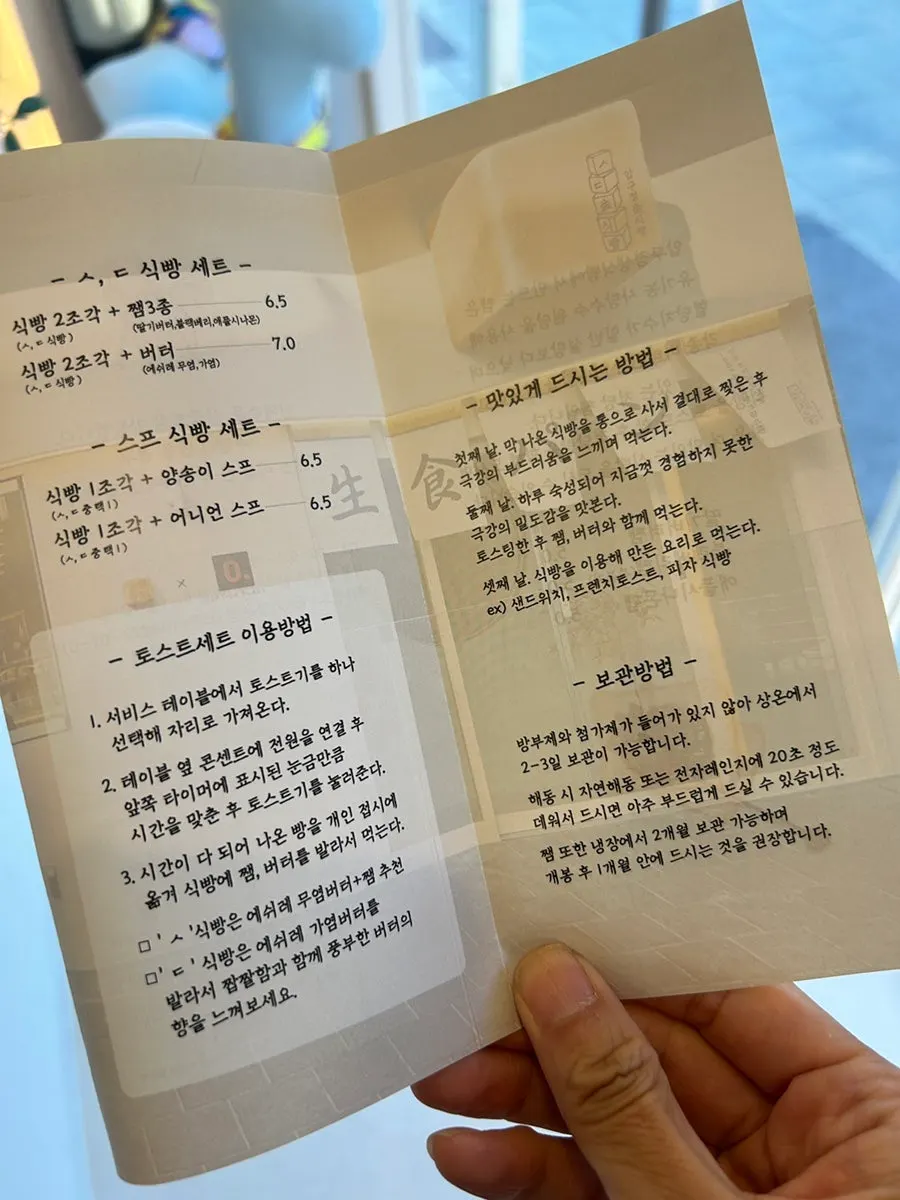 - ㅅ, ㄷ 식빵 세트 -
식빵 2조각 + 쨈3종 6.5
(ㅅ,ㄷ 식빵) (딸기버터,블랙베리,애플시나몬)
식빵 2조각 + 버터 7.0
(ㅅ,ㄷ 식빵) (에쉬레 무염,가염)
- 스프 식빵 세트 -
식빵 1조각 + 양송이 스프 6.5
(ㅅ,ㄷ중택1)
식빵 1조각 + 어니언 스프 6.5
(ㅅ,ㄷ중택1)
- 토스트세트 이용방법 -
1. 서비스 테이블에서 토스트기를 하나
선택해 자리로 가져온다.
2. 테이블 옆 콘센트에 전원을 연결 후
앞쪽 타이머에 표시된 눈금만큼
시간을 맞춘 후 토스트기를 눌러준다.
3. 시간이 다 되어 나온 빵을 개인 접시에
옮겨 식빵에 쨈, 버터를 발라서 먹는다.
□ 'ㅅ'식빵은 에쉬레 무염버터+쨈 추천
□ 'ㄷ' 식빵은 에쉬레 가염버터를
발라서 짭짤함과 함께 풍부한 버터의
향을 느껴보세요.
- 맛있게 드시는 방법 -
첫째 날. 막 나온 식빵을 통으로 사서 결대로 찢은 후
극강의 부드러움을 느끼며 먹는다.
둘째 날. 하루 숙성되어 지금껏 경험하지 못한
극강의 밀도감을 맛본다.
토스팅한 후 쨈, 버터와 함께 먹는다.
셋째 날. 식빵을 이용해 만든 요리로 먹는다.
ex) 샌드위치, 프렌치토스트, 피자 식빵
- 보관방법 -
방부제와 첨가제가 들어가 있지 않아 상온에서
2-3일 보관이 가능합니다.
해동 시 자연해동 또는 전자레인지에 20초 정도
데워서 드시면 아주 부드럽게 드실 수 있습니다.
쨈 또한 냉장에서 2개월 보관 가능하며
개봉 후 1개월 안에 드시는 것을 권장합니다.
生 食